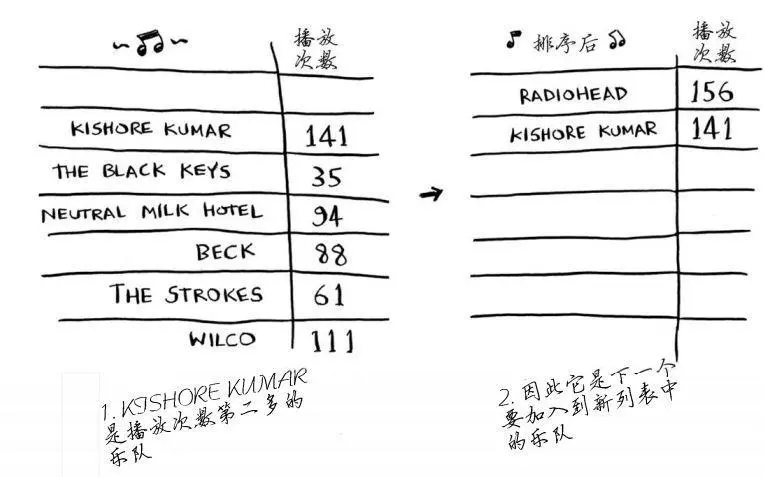 播放
次数
KISHORE KUMAR 141
THE BLACK KEYS 35
NEUTRAL MILK HOTEL 94
BECK 88
THE STROKES 61
WILCO 111
1. KISHORE KUMAR
是播放次数第二多的
乐队
排序后 播放
次数
RADIOHEAD 156
KISHORE KUMAR 141
2. 因此它是下一个
要加入到新列表中
的乐队